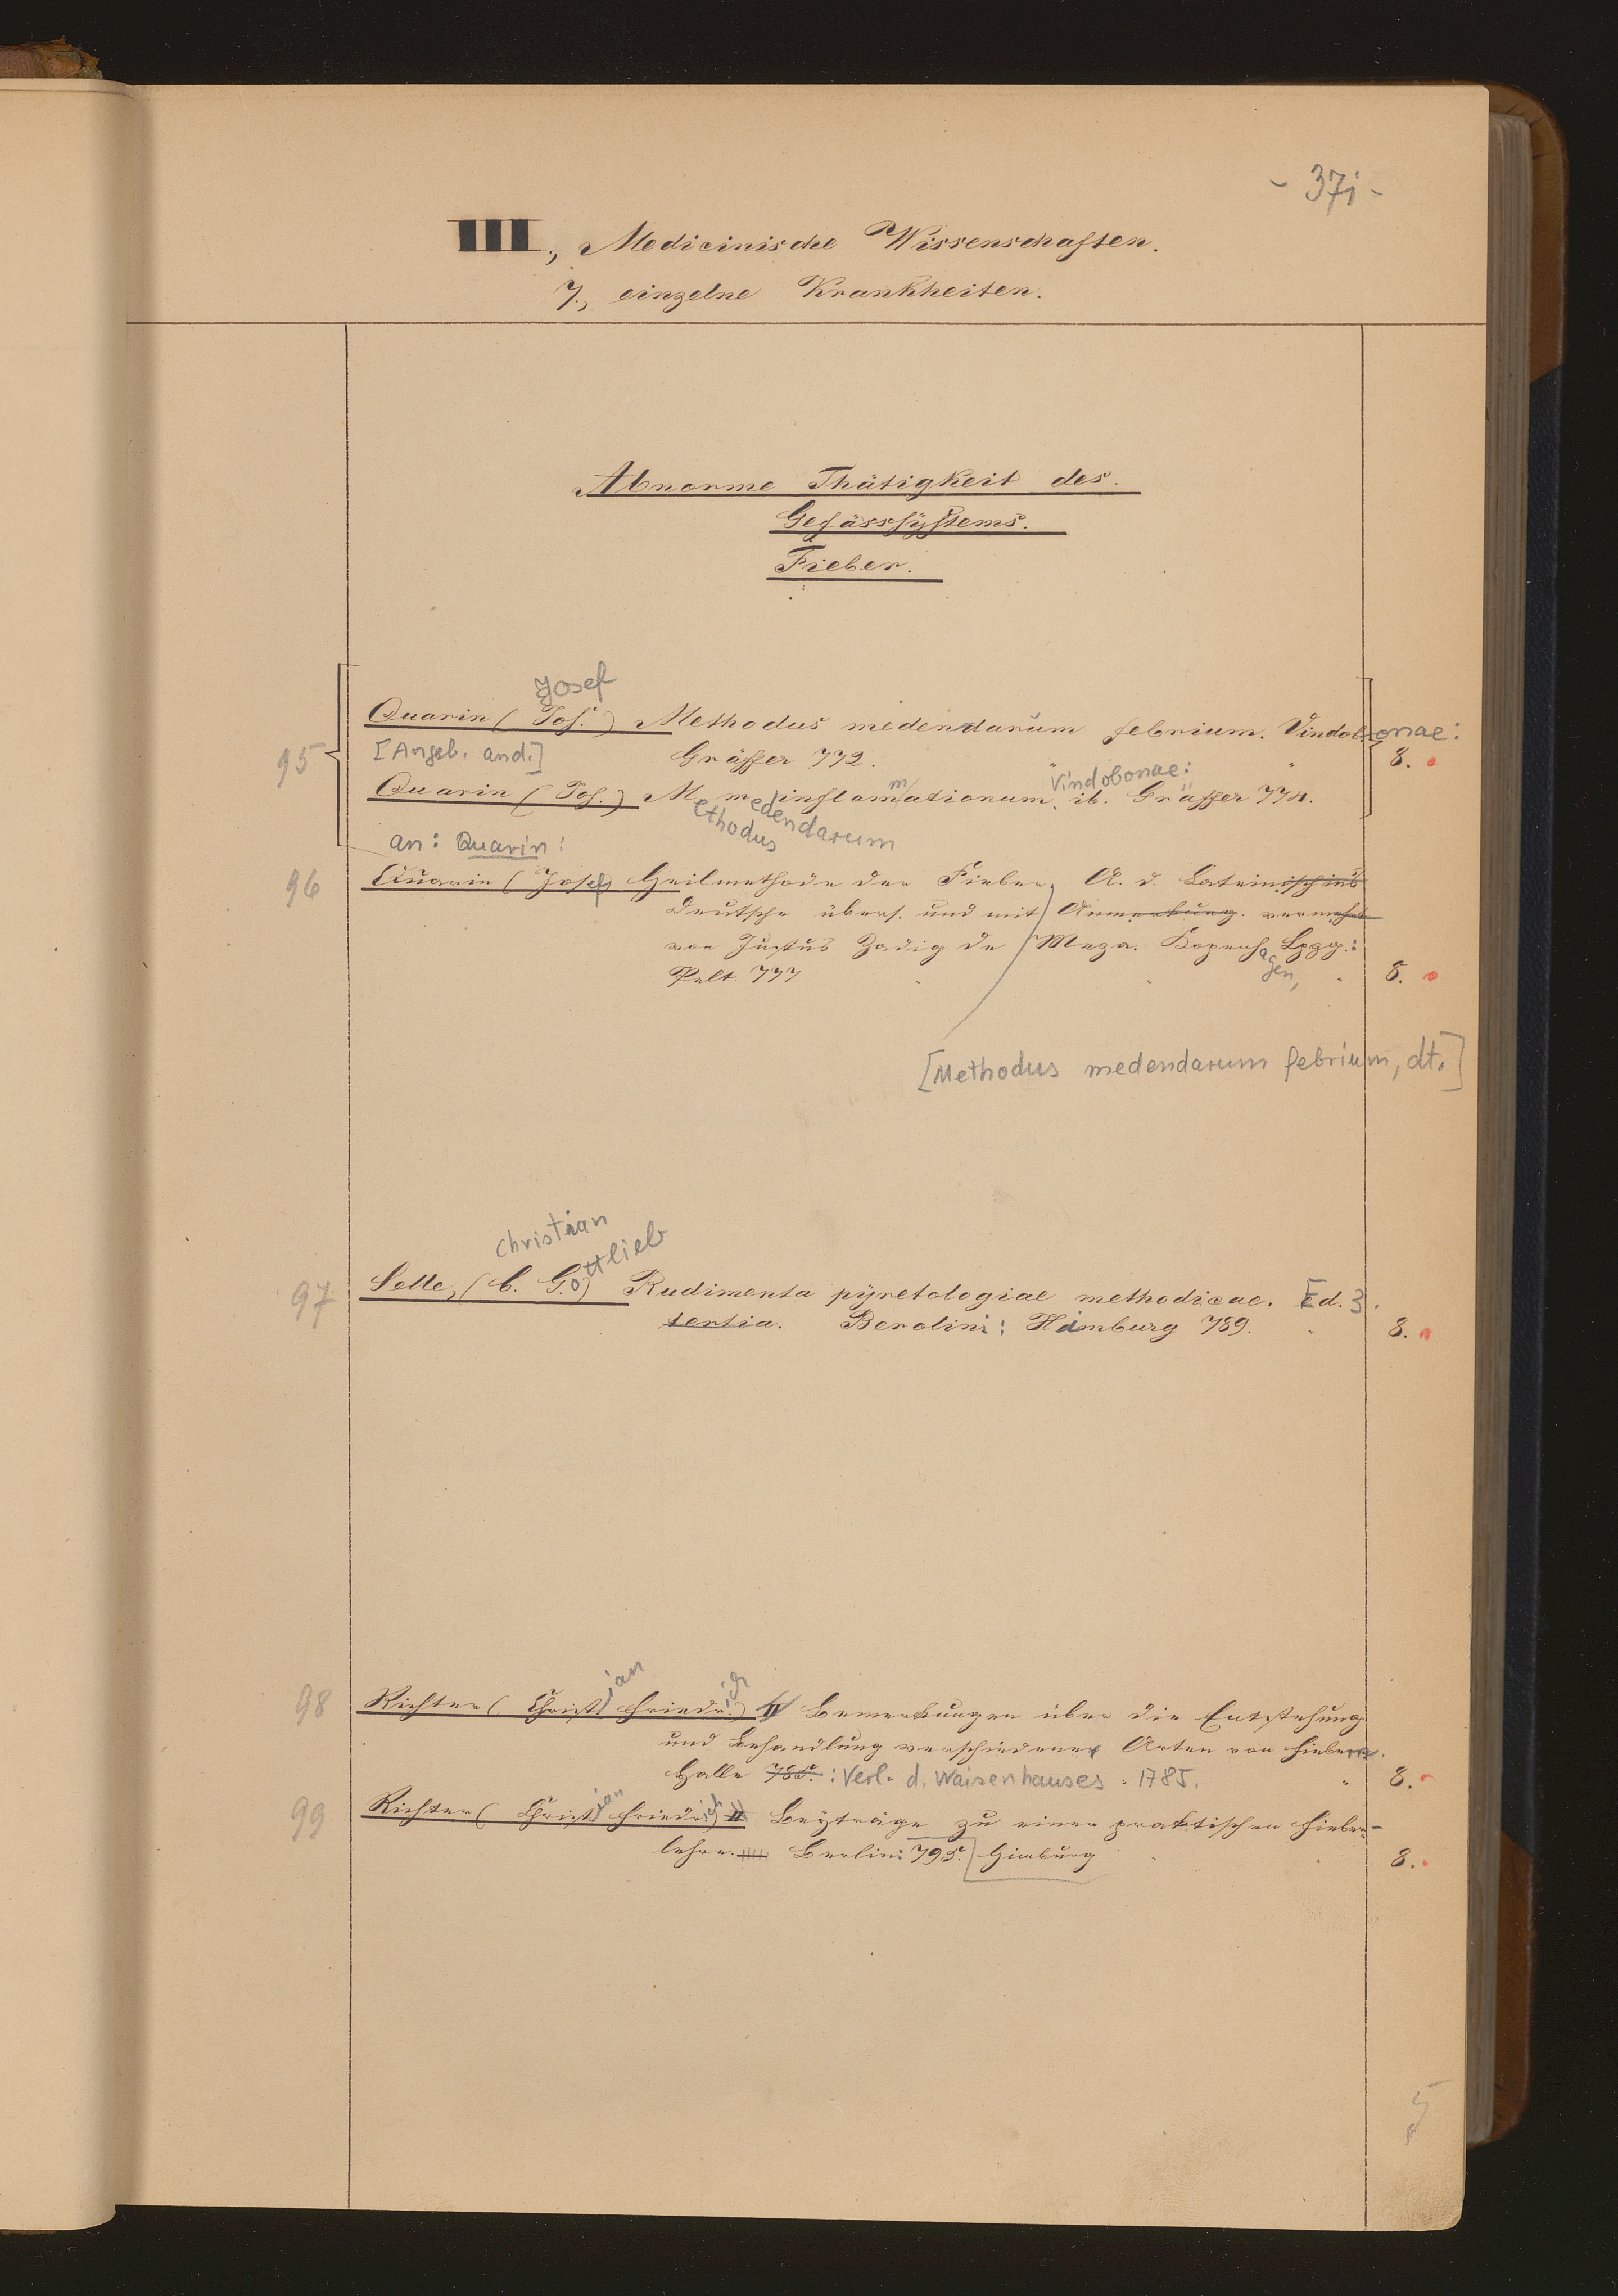 - 371 -
III., Medicinische Wissenschaften.
7., einzelne Krankheiten.
Abnorme Thätigkeit des
Gefässsystems.
Fieber.
Josef
Quarin (Jos.) Methodus medendarum febrium. Vindobonae:
95 [Angeb. and.] Gräffer 772. " " 8.
m Vindobonae:
Quarin (Jos.) M. med inflamationum, ib. Gräffer 774.
ethodus edendarum
an: Quarin:
96 Quarin (Josef) Heilmethode der Fieber, A. d. Lateinisch ins
Deutsche übers. und mit Anmerkung. vermehrt
von Justus Zadig de Meza. Kopenhagen, Lpzg.:
Pelt 777 " " " 8.
[Methodus medendarum febrium, dt.]
Christian
Gottlieb
97 Selle, (C. G.) Rudimenta pyretologiae methodicae. Ed. 3.
tertia. Berolini: Himburg 789. " 8.
ian ich
98 Richter (Christ. Friedr.) Bemerkungen über die Entstehung
und Behandlung verschiedener Arten von Fiebern.
Halle 785. : Verl. d. Waisenhauses 1785. " 8.
ian ich
99 Richter (Christ. Friedr.) Beyträge zu einer praktischen Fieber-
lehre. Berlin: 795. Himburg " " 8.
5